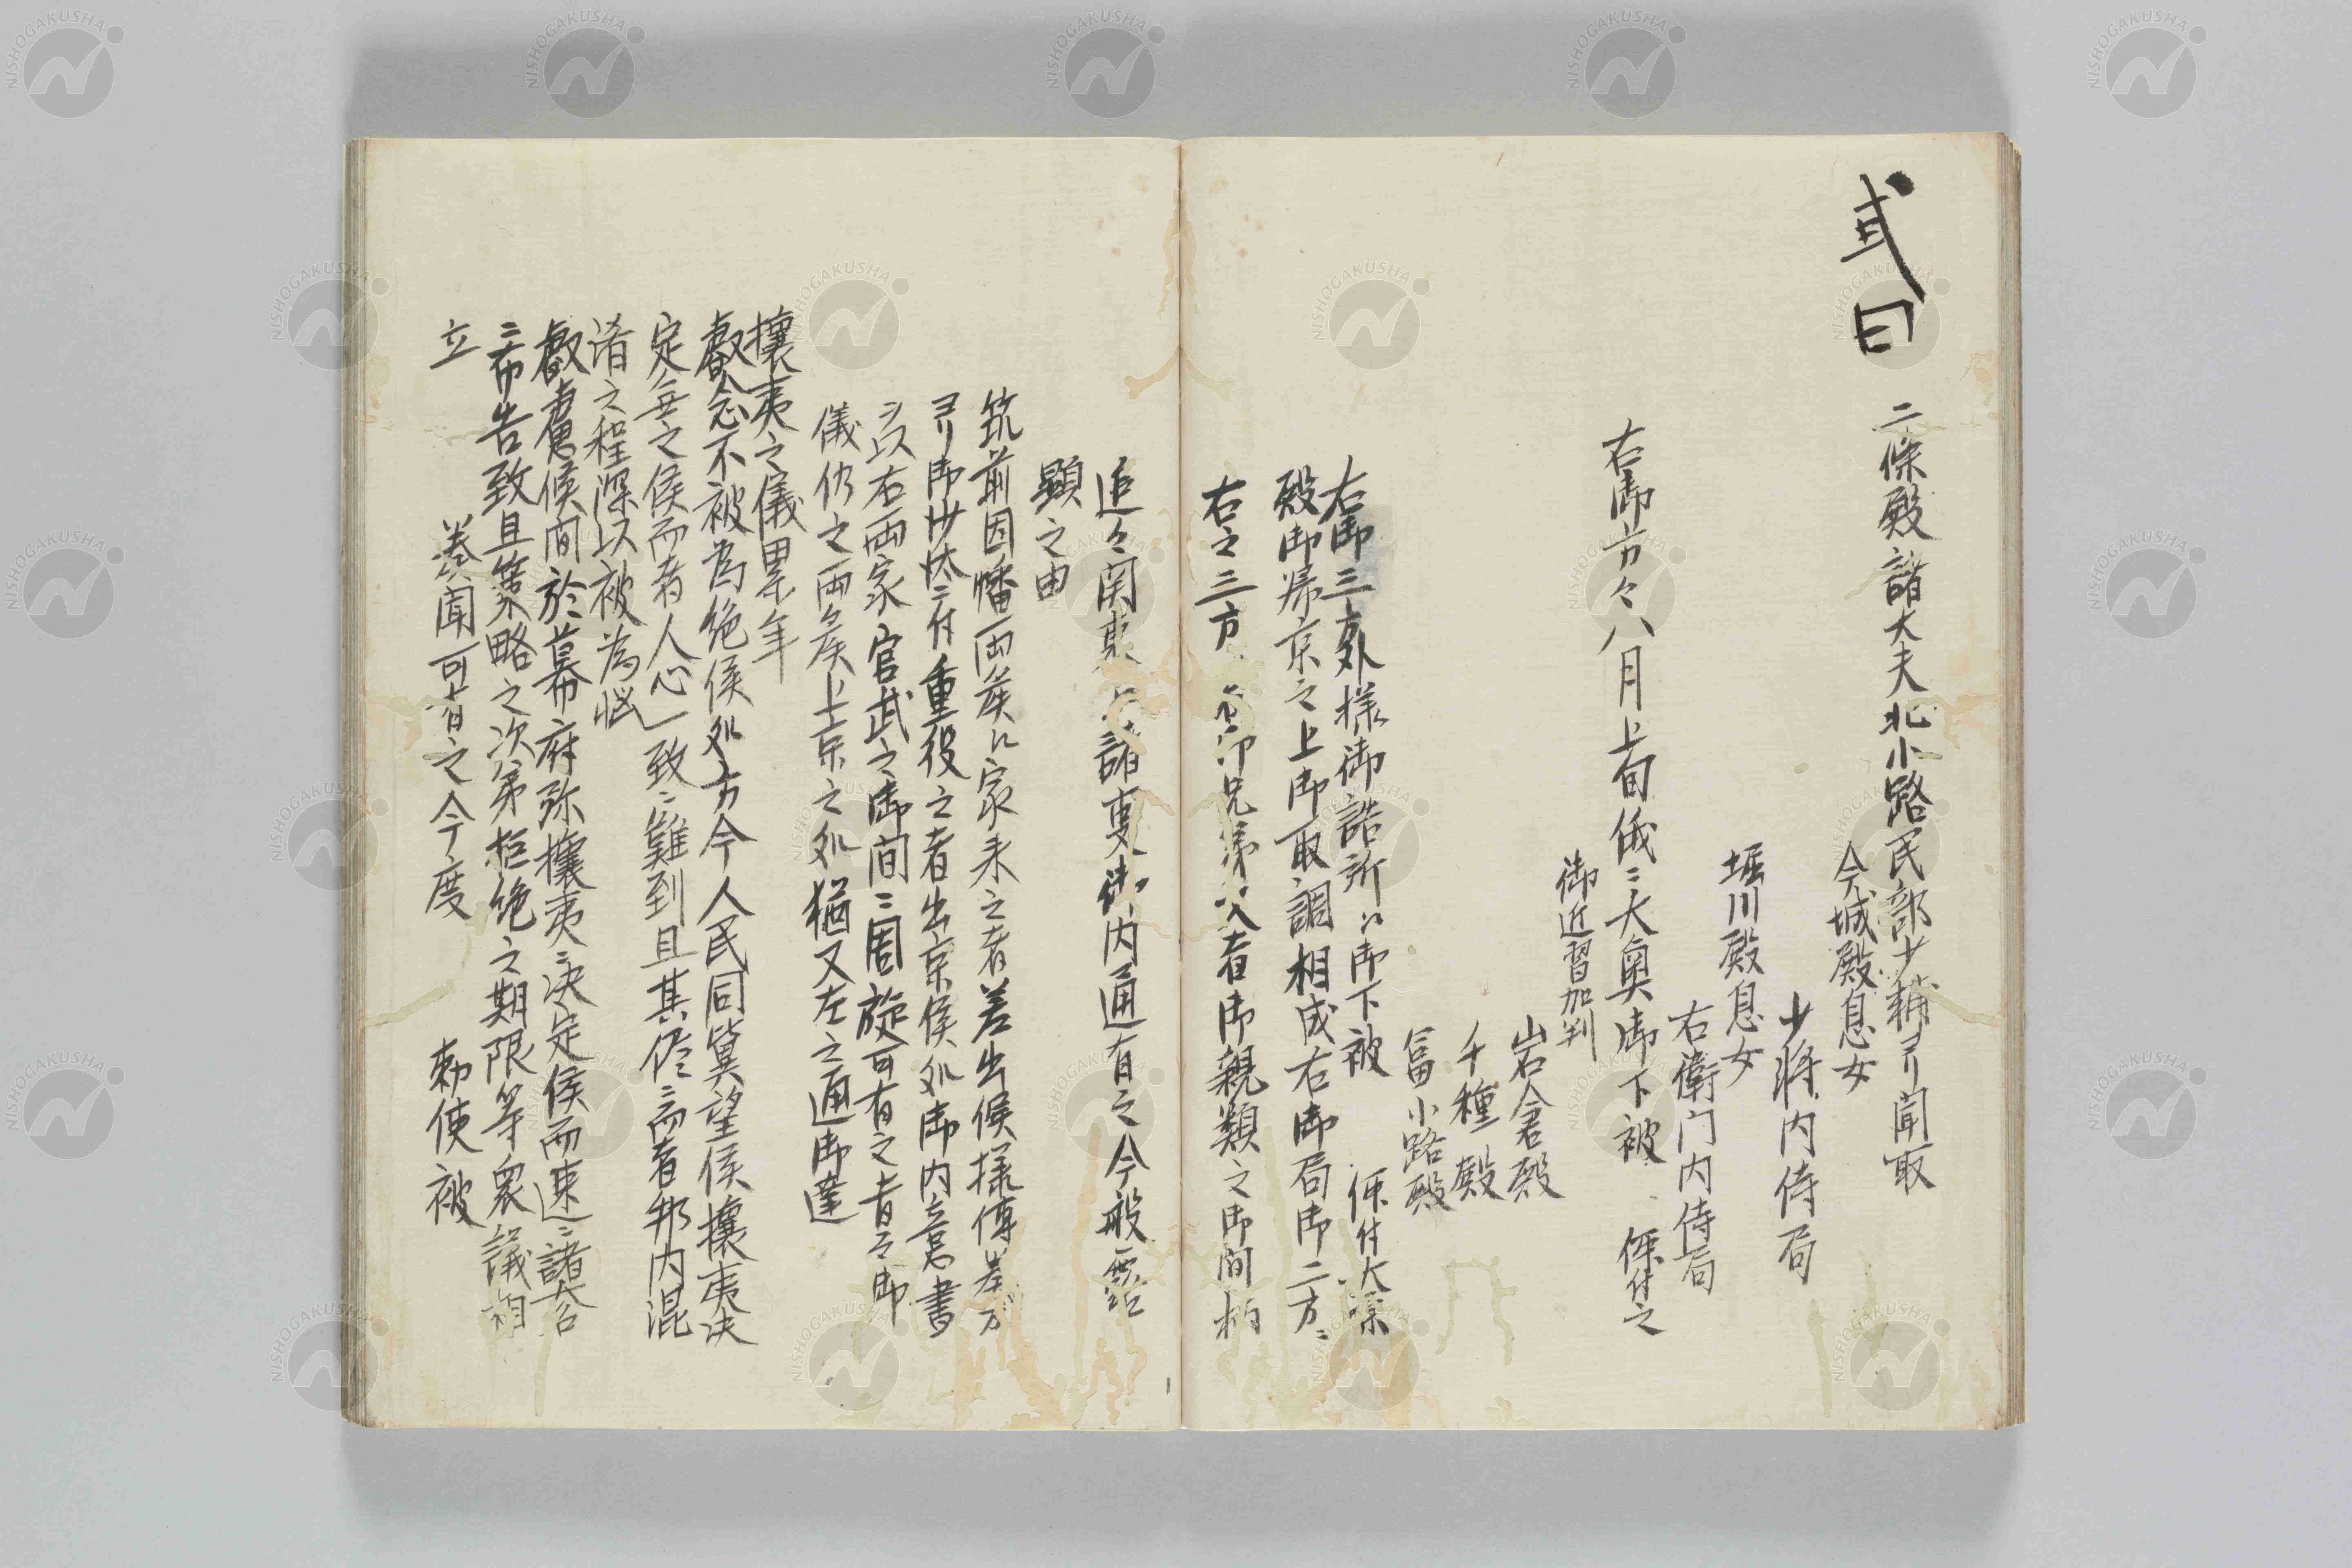 弐曰
二條殿諸大夫北小路民部少輔ゟ聞取
今城殿息女
少將内侍局
堀川殿息女
右衛门内侍局
右御方々八月上旬俄ニ大奥御下被　仰付之
御近習加判
岩倉殿
千種殿
冨小路殿
右御三方外様御詰所江御下被　仰付大原
殿御帰京之上御取調相成右御局御二方ニ
右之三方御兄弟又者御親類之御間柄
追々関東江諸事御内通有之今般露
顕之由
筑前因幡両矦江家来之者差出候様傳奏方
ゟ御沙汰ニ付重役之者出京候処御内意書
ヲ以右両家官武之御間ニ周旋可有之旨之御
儀仍之両矦上京之処猶又左之通御達
攘夷之儀累年
叡念不被為絶候処方今人民同冀望候攘夷决
定無之候而者人心一致ニ難到且其侭ニ而者邦内混
淆之程深以被為惱
叡慮候間於幕府弥攘夷ニ決定候而速ニ諸大名
ニ布告致且策略之次第拒絶之期限等衆議相
立
奏聞可有之今度　勅使被
NISHOGAKUSHA